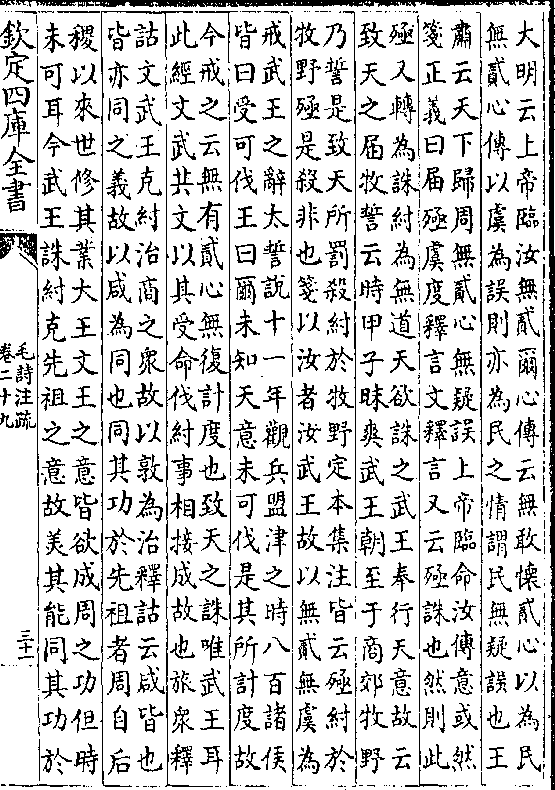 大明云上帝臨汝無貳爾心傳云無敢懷貳心以為民
無貳心傳以虞為誤則亦為民之情謂民無疑誤也王
肅云天下歸周無貳心無疑誤上帝臨命汝傳意或然
箋正義曰屆殛虞度釋言文釋言又云殛誅也然則此
殛又轉為誅紂為無道天欲誅之武王奉行天意故云
致天之屆牧誓云時甲子昧爽武王朝至于商郊牧野
乃誓是致天所罰殺紂於牧野定本集注皆云殛紂於
牧野殛是殺非也箋以汝者汝武王故以無貳無虞為
戒武王之辭太誓說十一年觀兵盟津之時八百諸侯
皆曰受可伐王曰爾未知天意未可伐是其所計度故
今戒之云無有貳心無復計度也致天之誅唯武王耳
此經文武共文以其受命伐紂事相接成故也旅眾釋
詁文武王克紂治商之眾故以敦為治釋詁云咸皆也
皆亦同之義故以咸為同也同其功於先祖者周自后
稷以來世修其業大王文王之意皆欲成周之功但時
未可耳今武王誅紂克先祖之意故美其能同其功於
欽定四庫全書
毛詩注疏
卷二十九
三十一